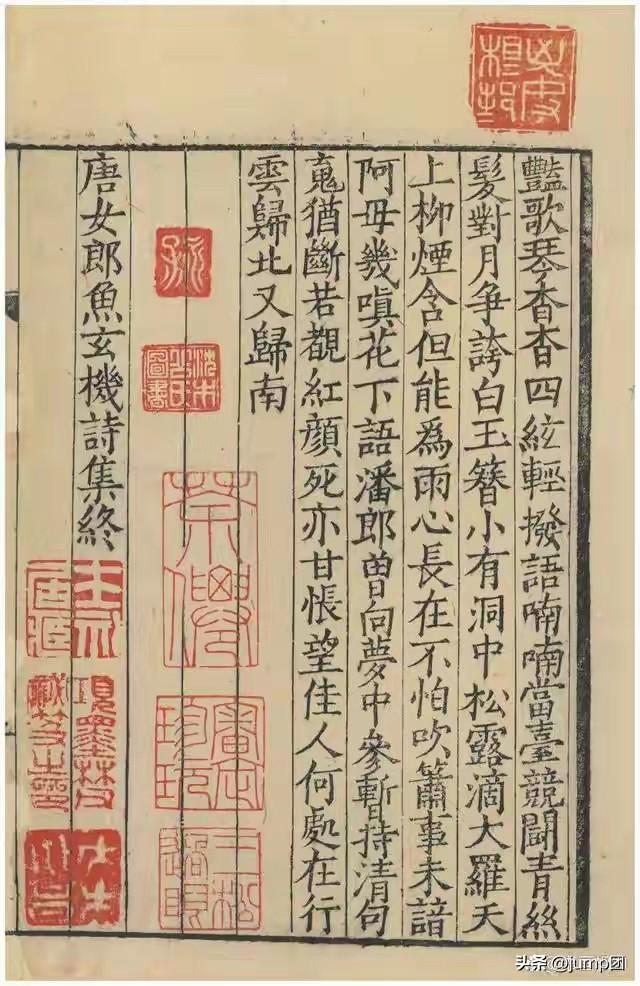 豔歌琴杳杳四絃輕撥語喃喃當臺競鬭青絲
髮對月爭誇白玉簪小有洞中松露滴大羅天
上柳煙含但能爲雨心長在不怕吹簫事未諳
阿母幾嗔花下語潘郎曾向夢中參暫持清句
䰟猶斷若覩紅顔死亦甘悵望佳人何處在行
雲歸北又歸南
唐女郎魚玄機詩集終
头条 @jump团